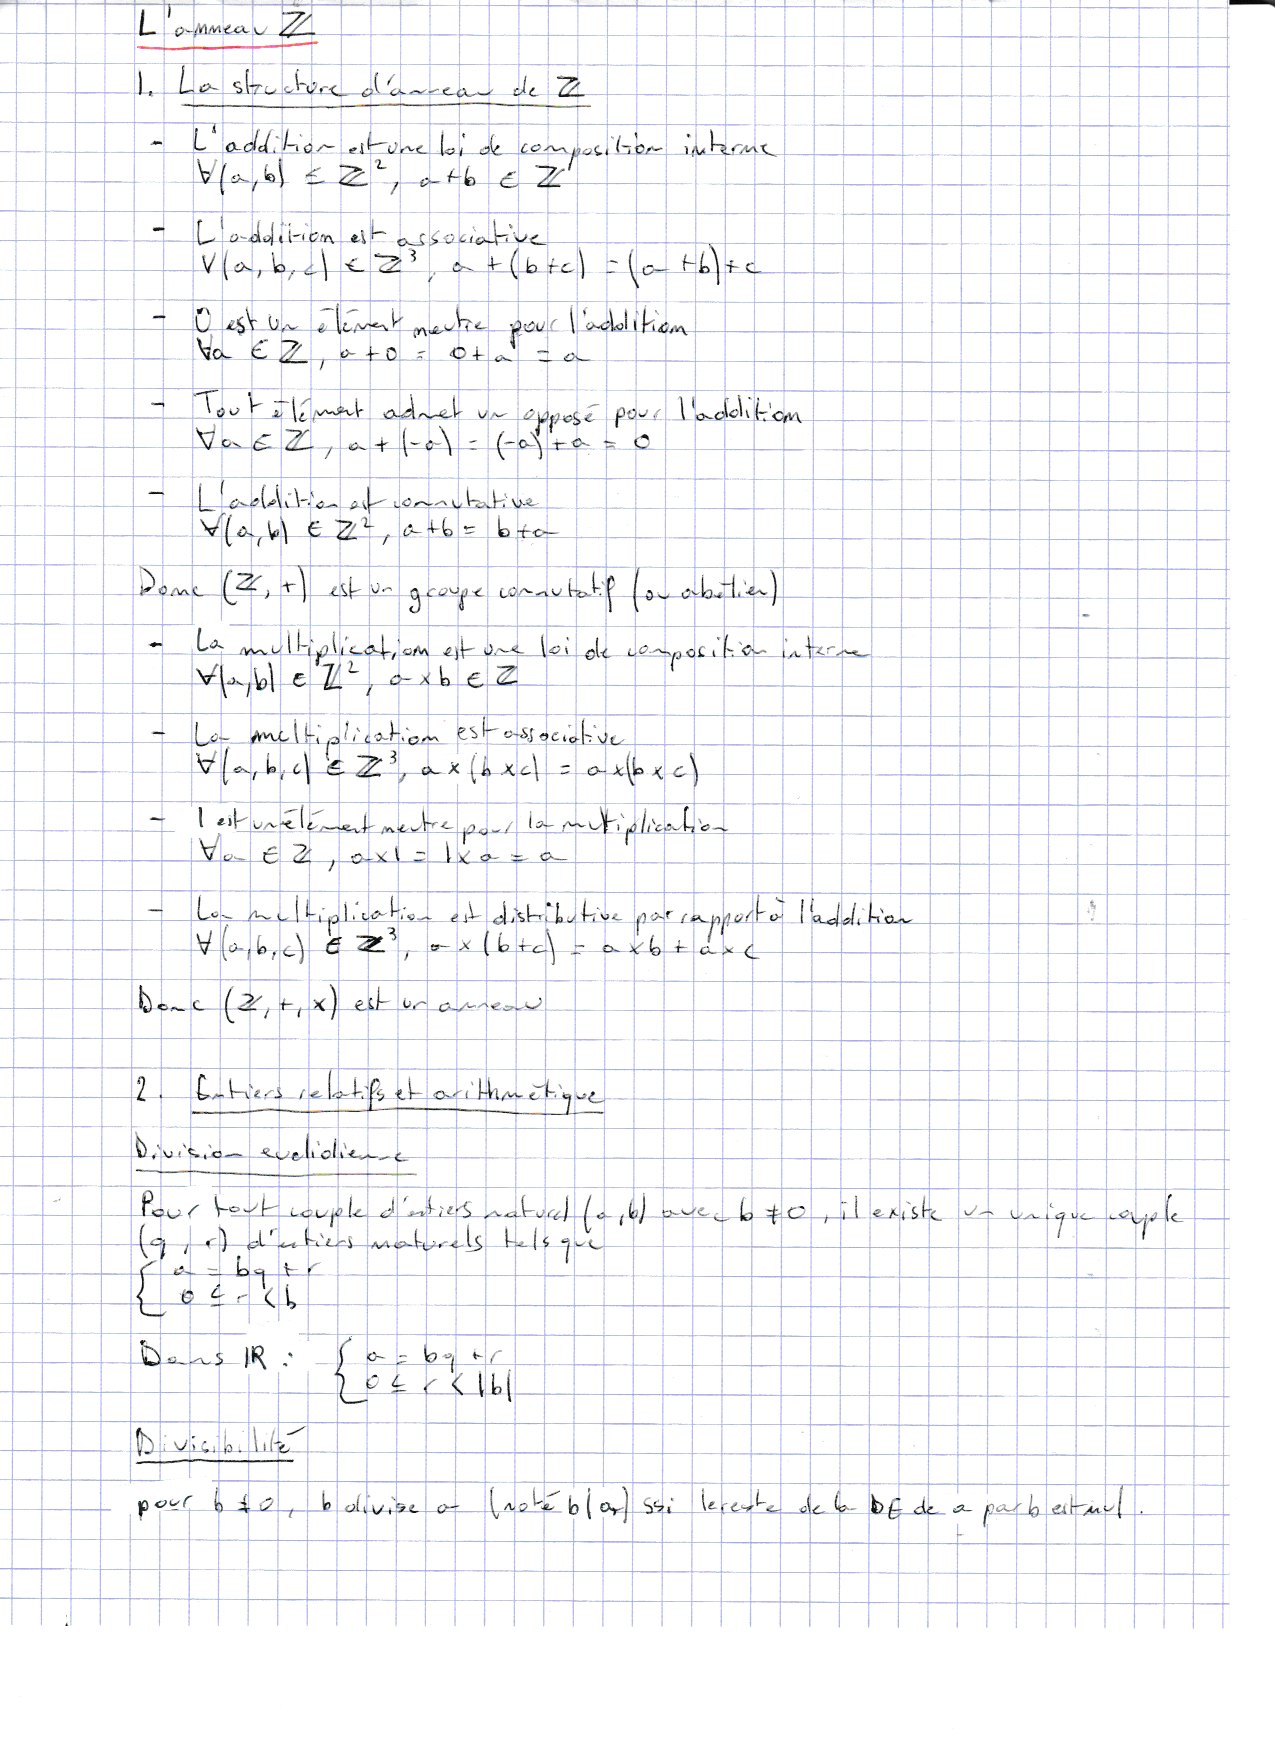 L'anneau ℤ
1. La structure d'anneau de ℤ
- L'addition est une loi de composition interne
∀(a,b) ∈ ℤ², a+b ∈ ℤ
- L'addition est associative
∀(a,b,c) ∈ ℤ³, a+(b+c) = (a+b)+c
- 0 est un élément neutre pour l'addition
∀a ∈ ℤ, a+0 = 0+a = a
- Tout élément admet un opposé pour l'addition
∀a ∈ ℤ, a+(-a) = (-a)+a = 0
- L'addition est commutative
∀(a,b) ∈ ℤ², a+b = b+a
Donc (ℤ,+) est un groupe commutatif (ou abélien)
- La multiplication est une loi de composition interne
∀(a,b) ∈ ℤ², a×b ∈ ℤ
- La multiplication est associative
∀(a,b,c) ∈ ℤ³, a×(b×c) = a×(b×c)
- 1 est un élément neutre pour la mutiplication
∀a ∈ ℤ, a×1 = 1×a = a
- La multiplication est distributive par rapport à l'addition
∀(a,b,c) ∈ ℤ³, a×(b+c) = a×b + a×c
Donc (ℤ,+,×) est un anneau
2. Entiers relatifs et arithmétique
Division euclidienne
Pour tout couple d'entiers naturel (a,b) avec b ≠ 0, il existe un unique couple
(q, r) d'entiers naturels tels que
{ a = bq + r
0 ≤ r < b
Dans ℝ : { a = bq + r
0 ≤ r < |b|
Divisibilité
pour b ≠ 0, b divise a (noté b|a) ssi le reste de la DE de a par b est nul.